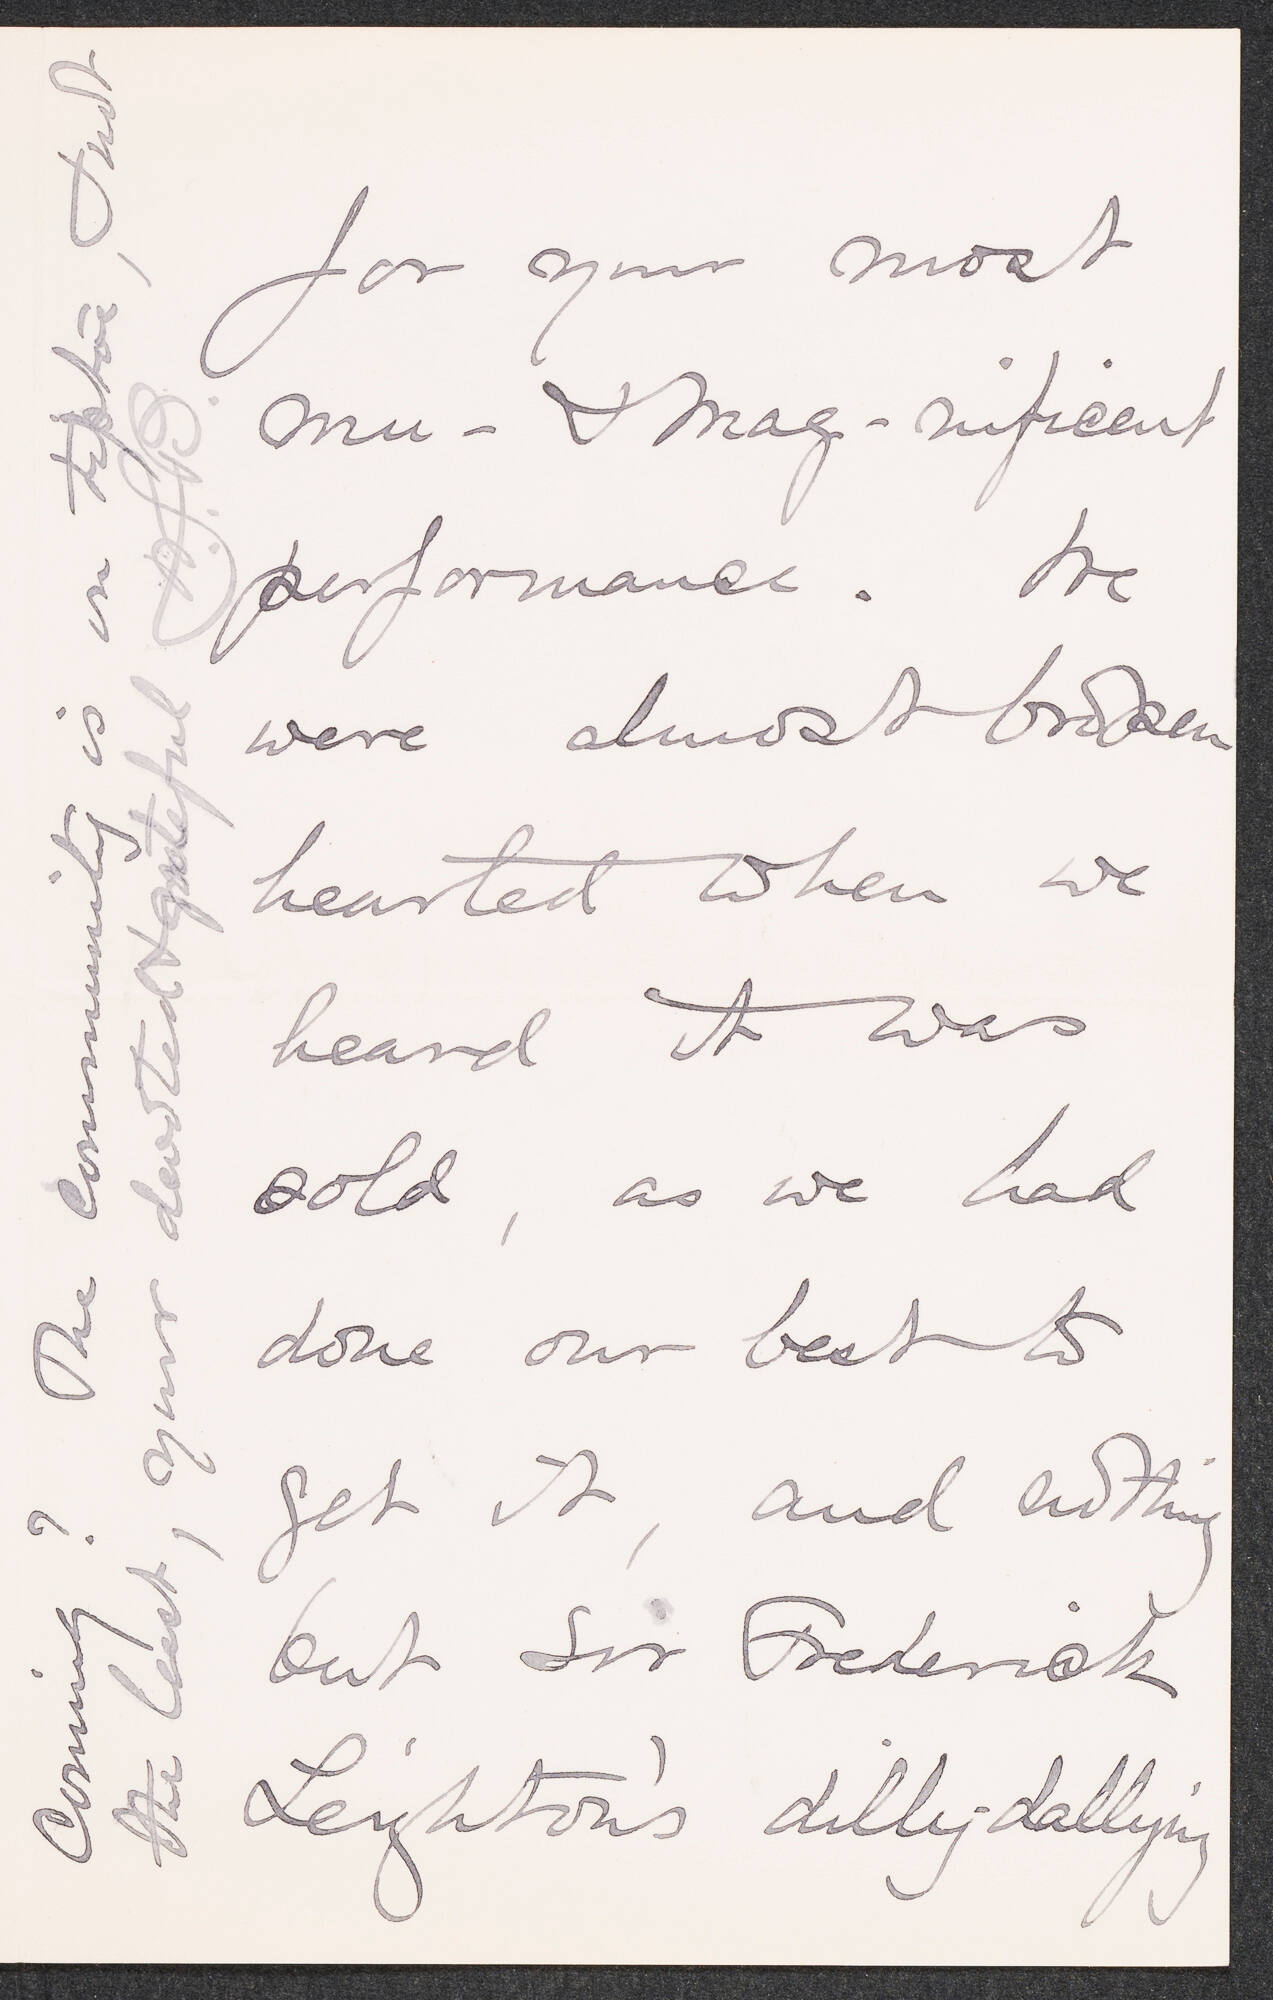 for your most
mu- & mag-nificent
performance. We
were almost broken
hearted when we
heard it was
sold, as we had
done our best to
get it, and nothing
but Sir Frederick
Leighton's dilly-dallying
Coming? The community is on tiptoe, not
the least, your devoted & grateful